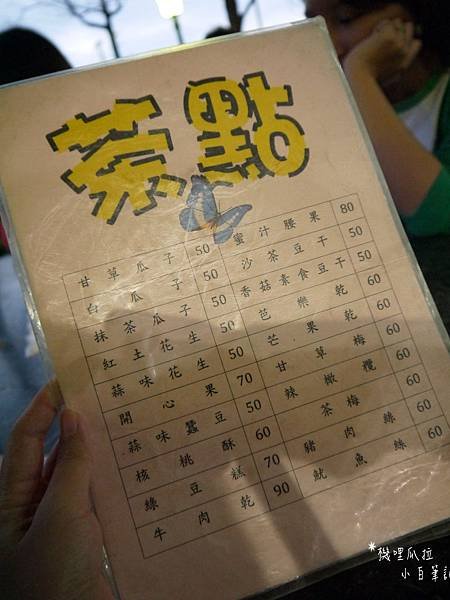 茶點
甘草瓜子 50 蜜汁腰果 80
白瓜子 50 沙茶豆干 50
抹茶瓜子 50 香菇素食豆干 50
紅土花生 50 芭樂乾 60
蒜味花生 50 芒果乾 60
開心果 70 甘草梅 60
蒜味蠶豆 50 辣橄欖 60
核桃酥 60 茶梅 60
綠豆糕 70 豬肉絲 60
牛肉乾 90 魷魚絲 60
*機哩瓜拉
小百筆記